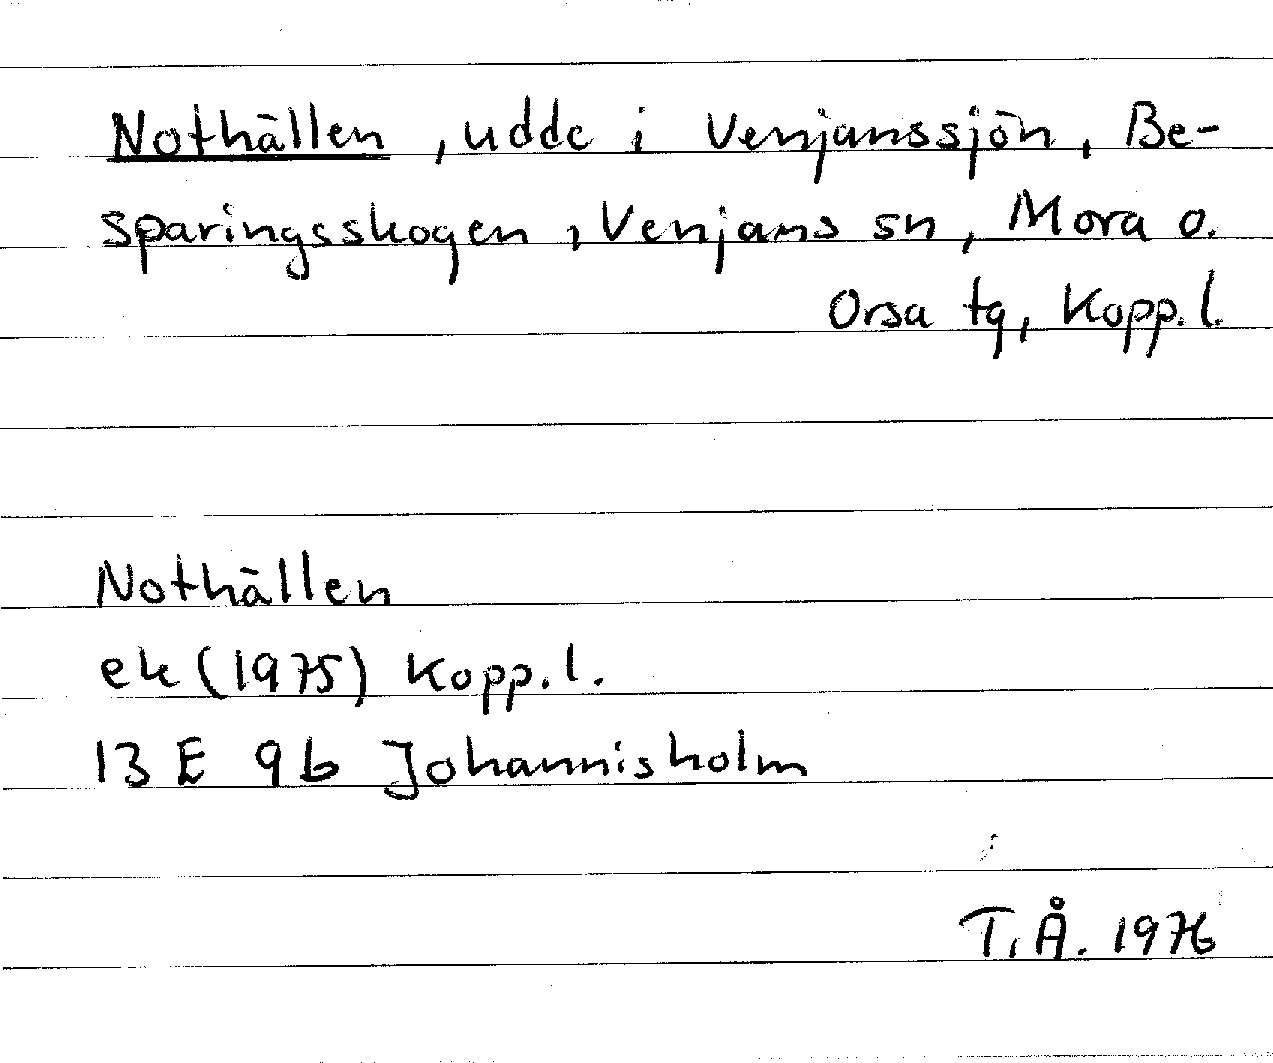 Nothällen, udde i Venjanssjön, Be-
sparingsskogen, Venjans sn, Mora o.
Orsa tg, Kopp. l.
Nothällen
ek (1975) Kopp. l.
13 E 9 b Johannisholm
T.Å. 1976